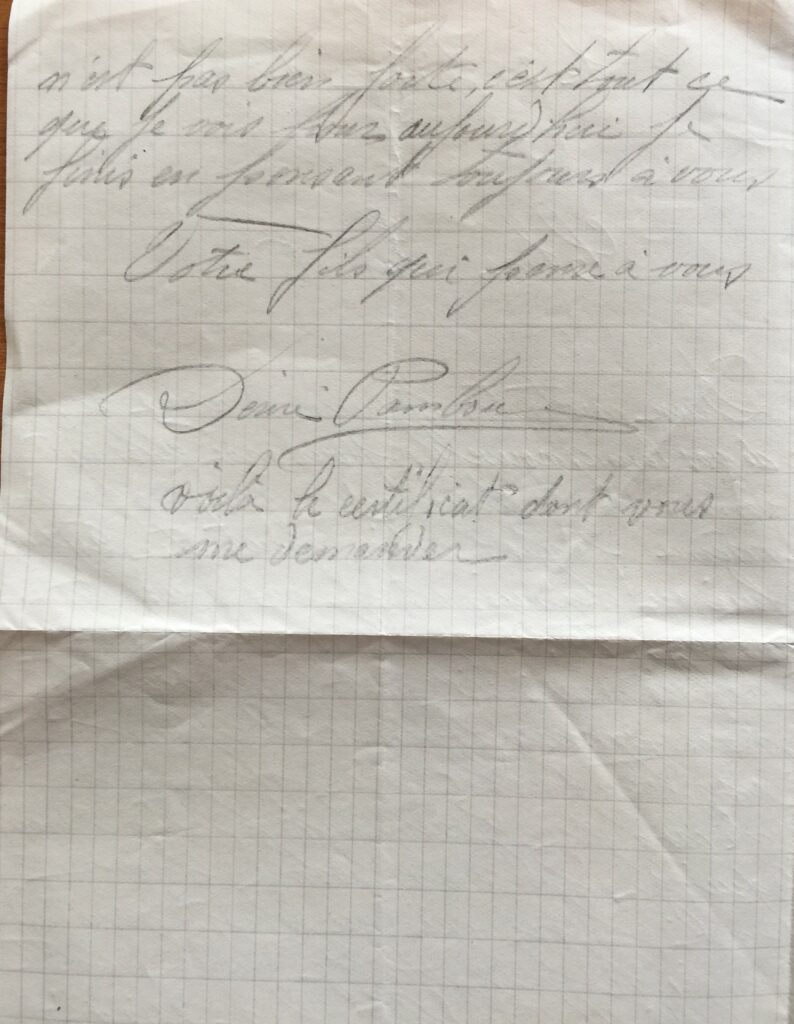 n'est pas bien forte, c'est tout ce
que je vois pour aujourd'hui je
finis en pensant toujours à vous
Votre fils qui pense à vous
voilà le certificat dont vous
me demander